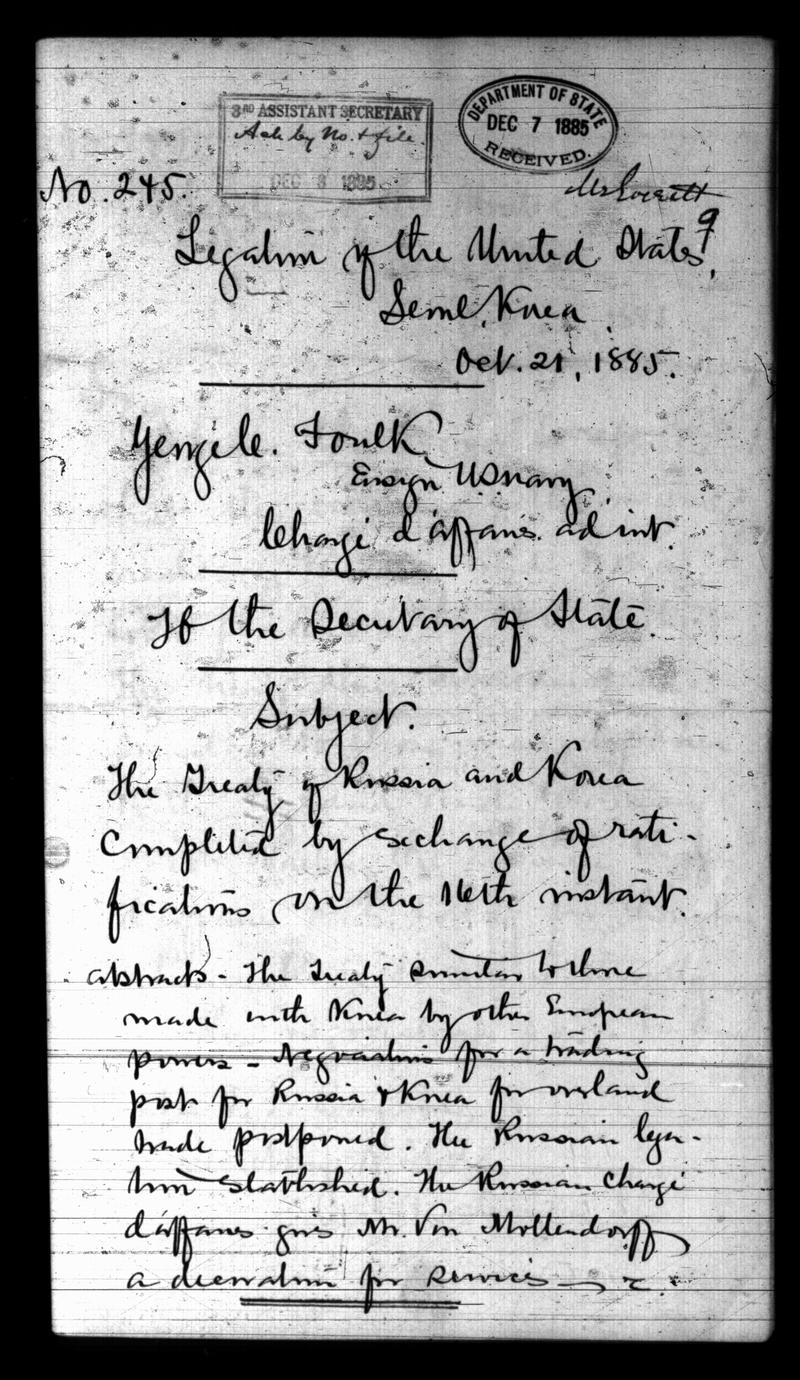 3RD ASSISTANT SECRETARY
Ack by No. & file.
DEC 8 1885
DEPARTMENT OF STATE
DEC 7 1885
RECEIVED.
No. 245.
Mr Everett
9
Legation of the United States,
Seoul, Korea.
Oct. 21, 1885.
George C. Foulk
Ensign U.S. Navy
Chargé d'affaires ad int.
To the Secretary of State.
Subject.
The Treaty of Russia and Korea
Completed by exchange of rati-
fications on the 16th instant.
abstract - The Treaty similar to those
made with Korea by other European
powers - Negociations for a trading
post for Russia & Korea for overland
trade postponed. The Russian lega-
tion established. The Russian Chargé
d'affaires gives Mr. Von Mollendorff
a decoration for services